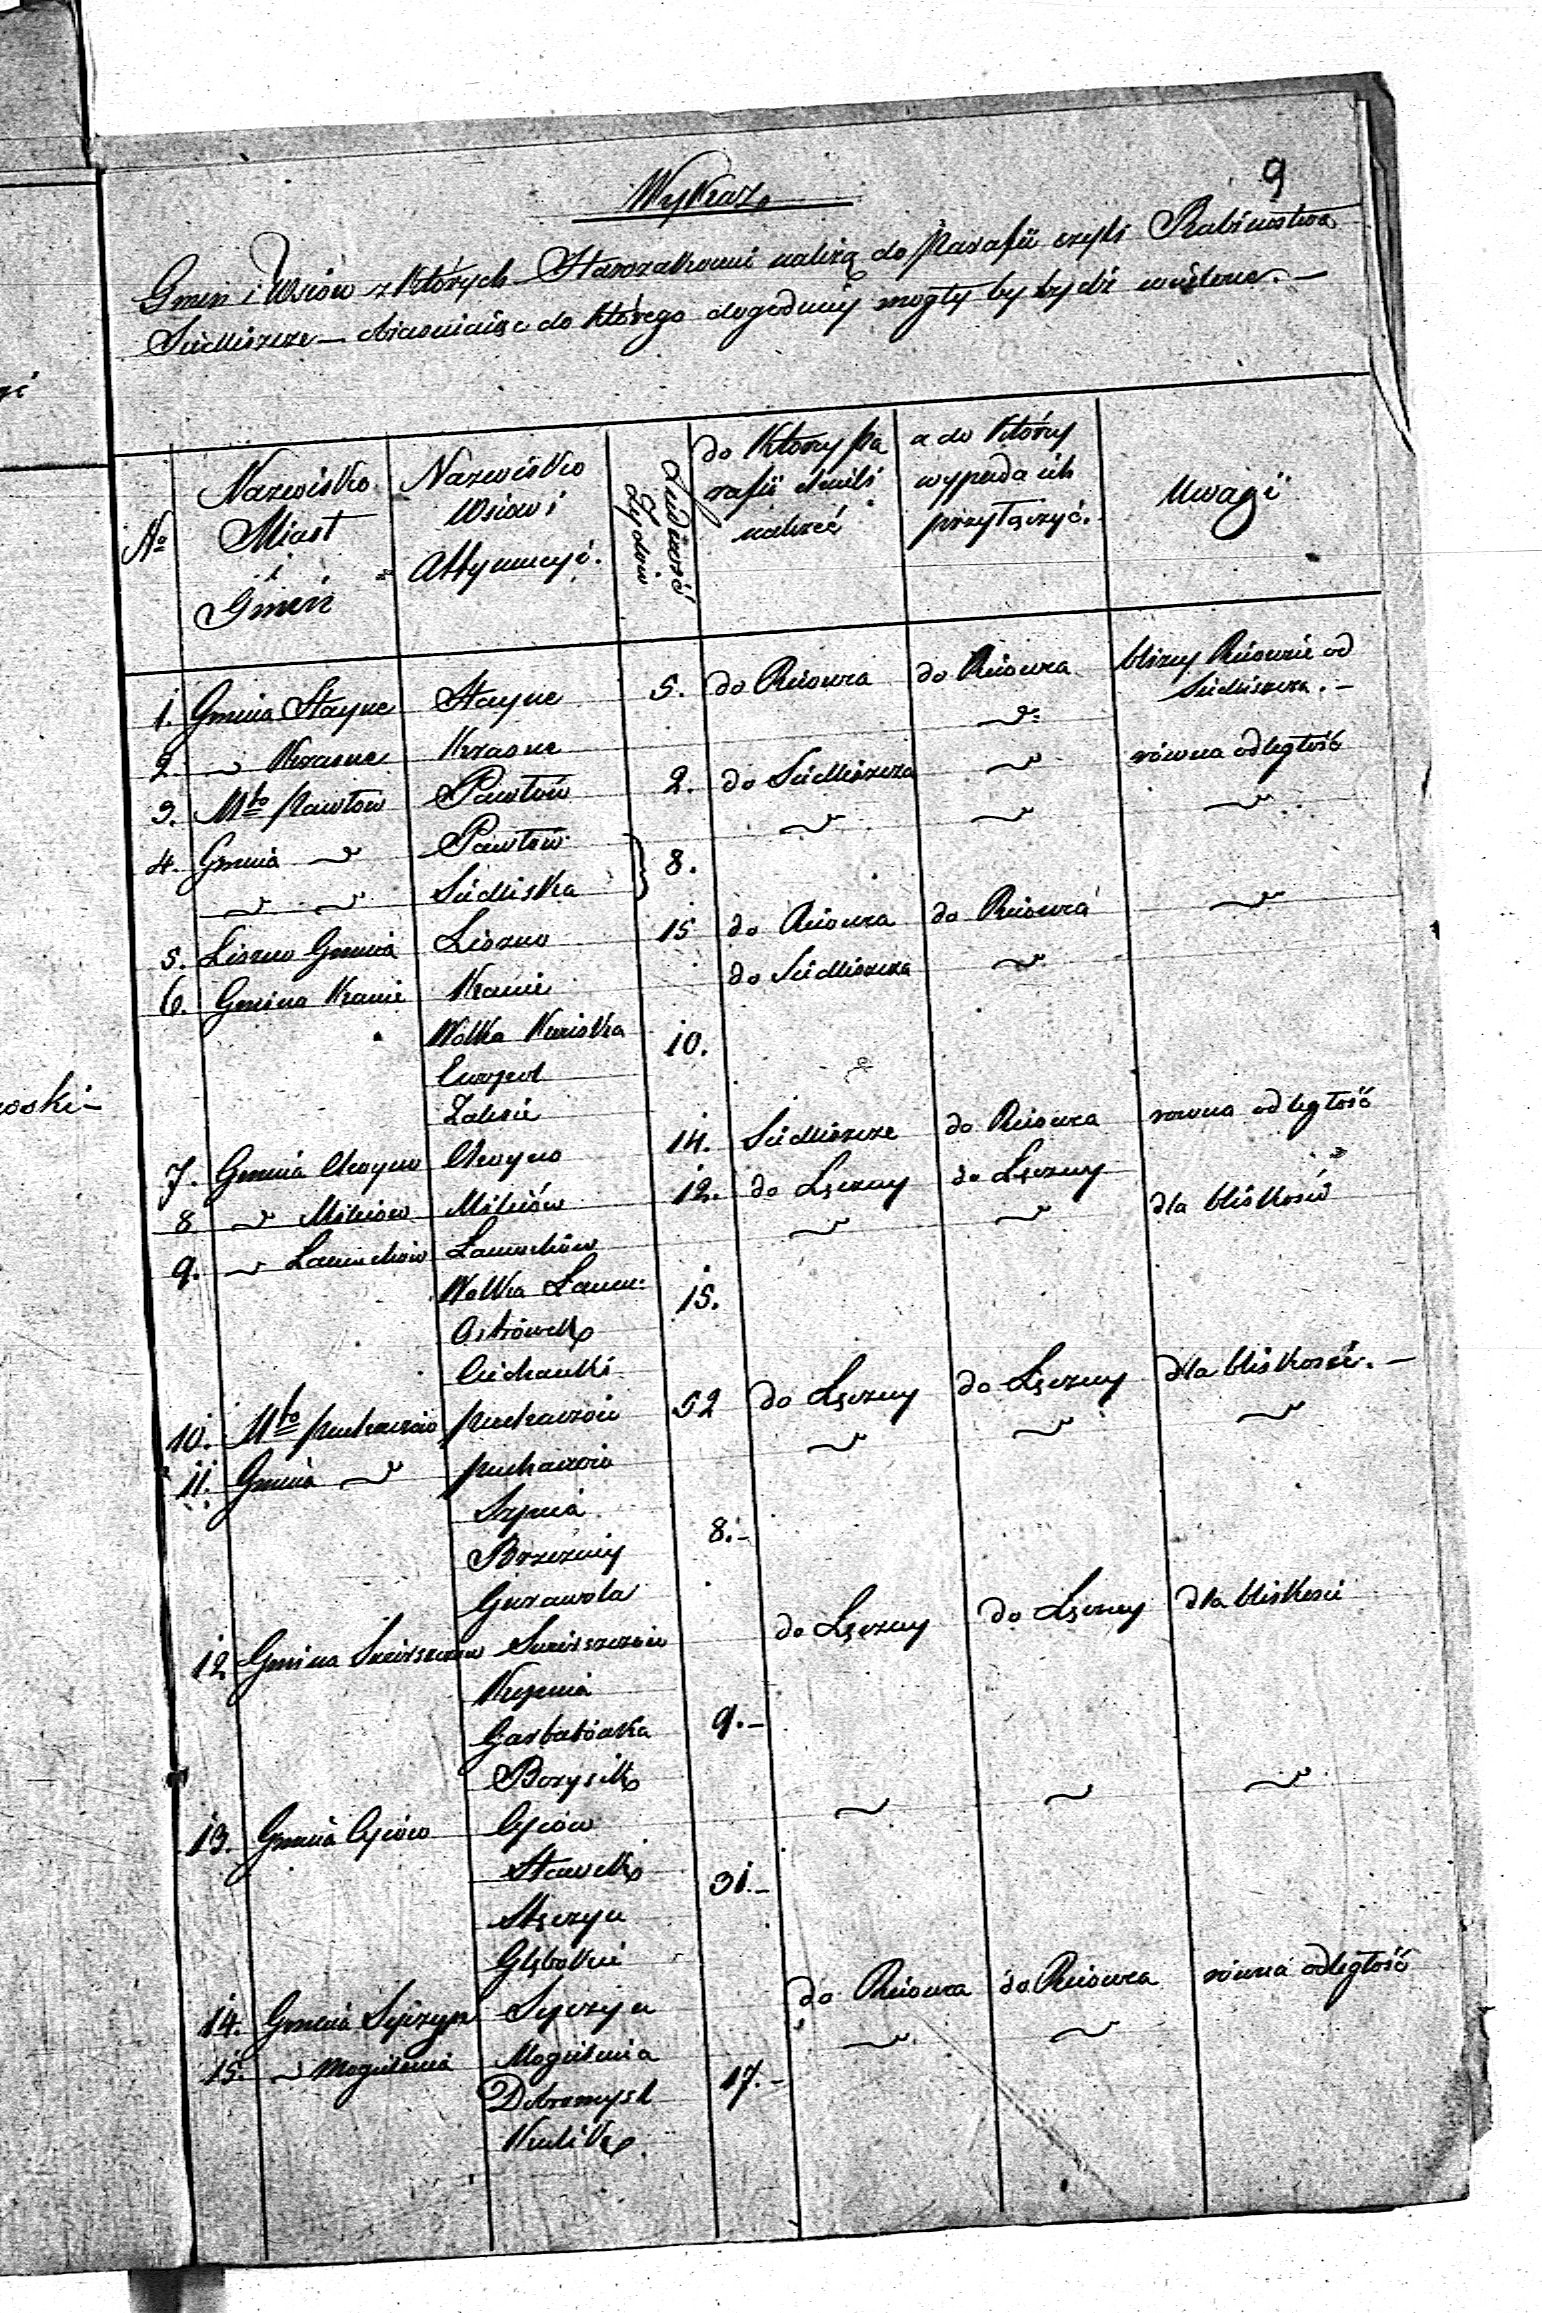 9
Wykaz.
Gmin i Wsiów z których Starozakonni należą do Parafii czyli Rabinostwa
Siedliszcze do którego dogodniej mogły by bydź wcielone. —
№ | Nazwisko Miast i Gmin | Nazwisko Wsiów i Attynencyi. | Ludność Żydów | do którey Parafii chcieli należeć | a do którey wypada ich przyłączyć. | Uwagi
1. Gmina Stayne | Stayne | 5. | do Reiowca | do Reiowca | bliżey Reiowca od Siedliszcza. —
2. " Krasne | Krasne | | | "
3. Mto Pawłow | Pawłów | 2. | do Siedliszcza | " | równa odległość
4. Gmina " | Pawłów | 8. | " | " | "
" " | Siedliska
5. Liszno Gmina | Liszno | 15 | do Reiowca | do Reiowca | "
6. Gmina Kanie | Kanie | | do Siedliszcza | "
Wólka Kańska | 10.
Europol
Zalesie
7. Gmina Chojno | Chojno | 14. | Siedliszcze | do Reiowca | rowna odległość
8 " Milejów | Milejów | 12. | do Łęczny | do Łęczny | "
9. " Łańuchów | Łańuchów | | " | " | dla bliskości
Wólka Łańu: | 15.
Ostrówek
Ciechanki
10. Mto Puchaczow | Puchaczów | 52 | do Łęczny | do Łęczny | dla bliskości. —
11. Gmina " | Puchaczow | | " | " | "
Szpica
Brzeziny | 8. —
Gurawola
12 Gmina Swiszczow | Swiszczów | | do Łęczny | do Łęczny | dla bliskości
Kopina
Garbatówka | 9. —
Borysik
13. Gmina Cyców | Cyców | | " | " | "
Stawek | 31. —
Stęczyn
Głębokie
14. Gmina Syczyn | Syczyn | | do Reiowca | do Reiowca | równa odległość
15. " Mogielnica | Mogielnica | | " | "
Dobromyśl | 17. —
Kulik